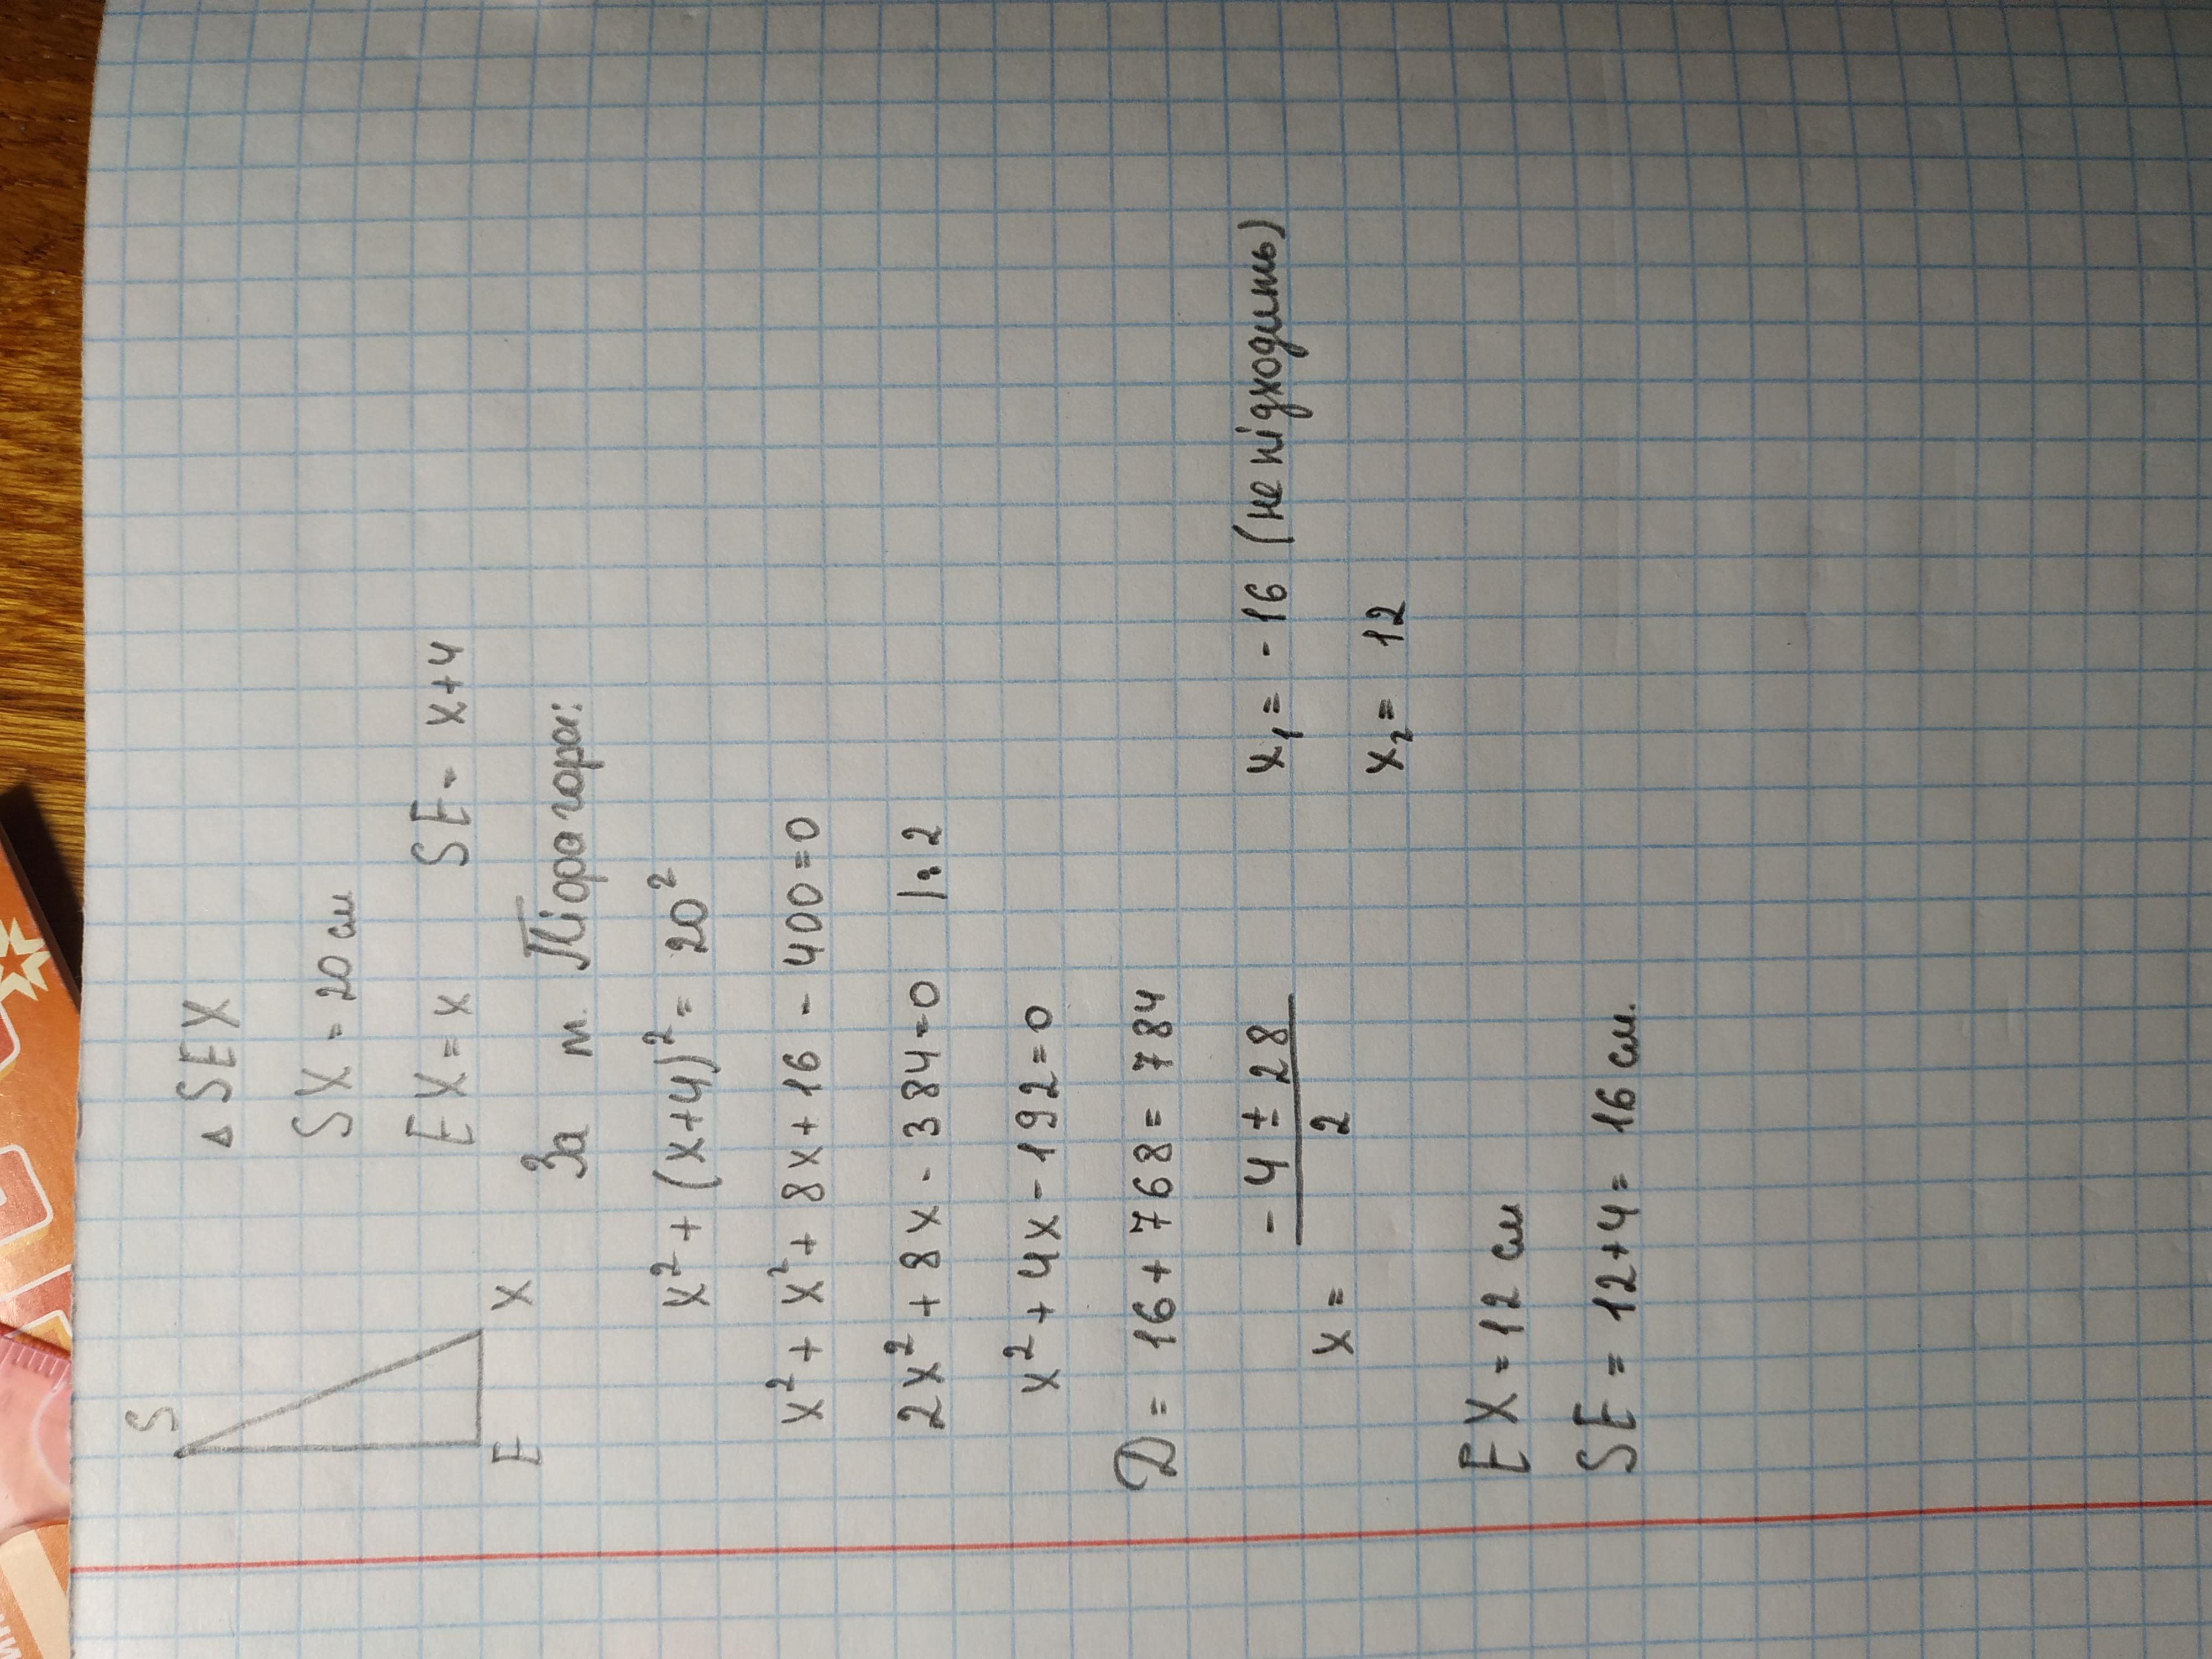 S
E
X
△ SEX
SX = 20 см
EX = x SE = x+4
За т. Піфагора:
x² + (x+4)² = 20²
x² + x² + 8x + 16 - 400 = 0
2x² + 8x - 384 = 0 |:2
x² + 4x - 192 = 0
D = 16 + 768 = 784
x = (-4 ± 28)/2
x₁ = -16 (не підходить)
x₂ = 12
EX = 12 см
SE = 12+4 = 16 см.